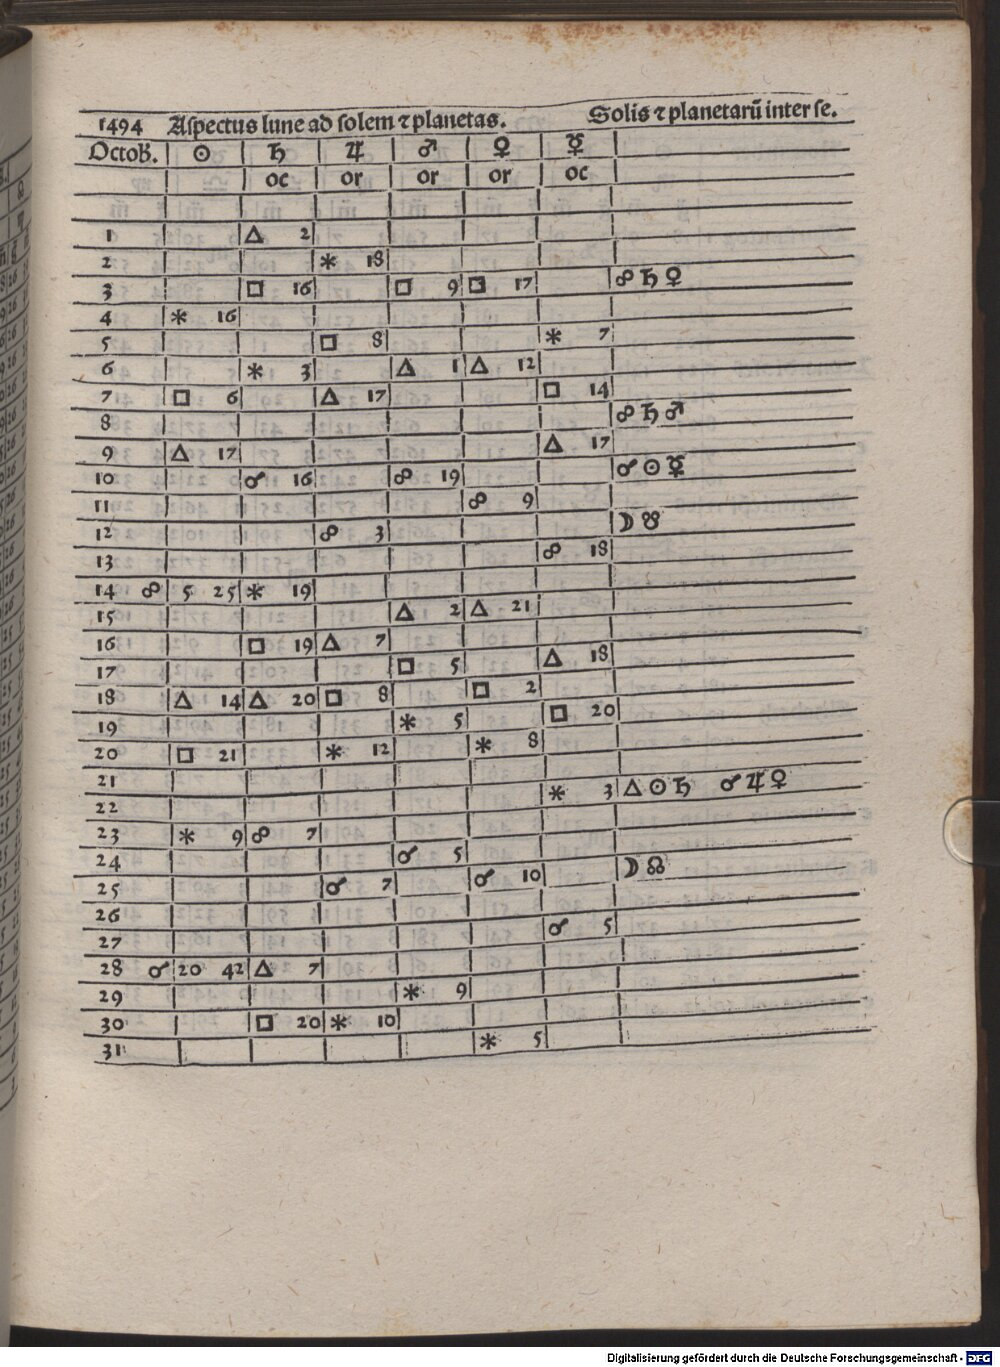 1494 Aspectus lune ad solem ⁊ planetas. Solis ⁊ planetarū inter se.
Octob. ☉ ♄ ♃ ♂ ♀ ☿
oc or or or oc
1 △ 2
2 ⚹ 18
3 □ 16 □ 9 □ 17 ☍ ♄ ♀
4 ⚹ 16
5 □ 8 ⚹ 7
6 ⚹ 3 △ 1 △ 12
7 □ 6 △ 17 □ 14
8 ☍ ♄ ♂
9 △ 17 △ 17
10 ☌ 16 ☍ 19 ☌ ☉ ☿
11 ☍ 9
12 ☍ 3 ☽ ☋
13 ☍ 18
14 ☍ 5 25 ⚹ 19
15 △ 2 △ 21
16 □ 19 △ 7
17 □ 5 △ 18
18 △ 14 △ 20 □ 8 □ 2
19 ⚹ 5 □ 20
20 □ 21 ⚹ 12 ⚹ 8
21
22 ⚹ 3 △ ☉ ♄ ☌ ♃ ♀
23 ⚹ 9 ☍ 7
24 ☌ 5
25 ☌ 7 ☌ 10 ☽ ☊
26
27 ☌ 5
28 ☌ 20 42 △ 7
29 ⚹ 9
30 □ 20 ⚹ 10
31 ⚹ 5
Digitalisierung gefördert durch die Deutsche Forschungsgemeinschaft - DFG